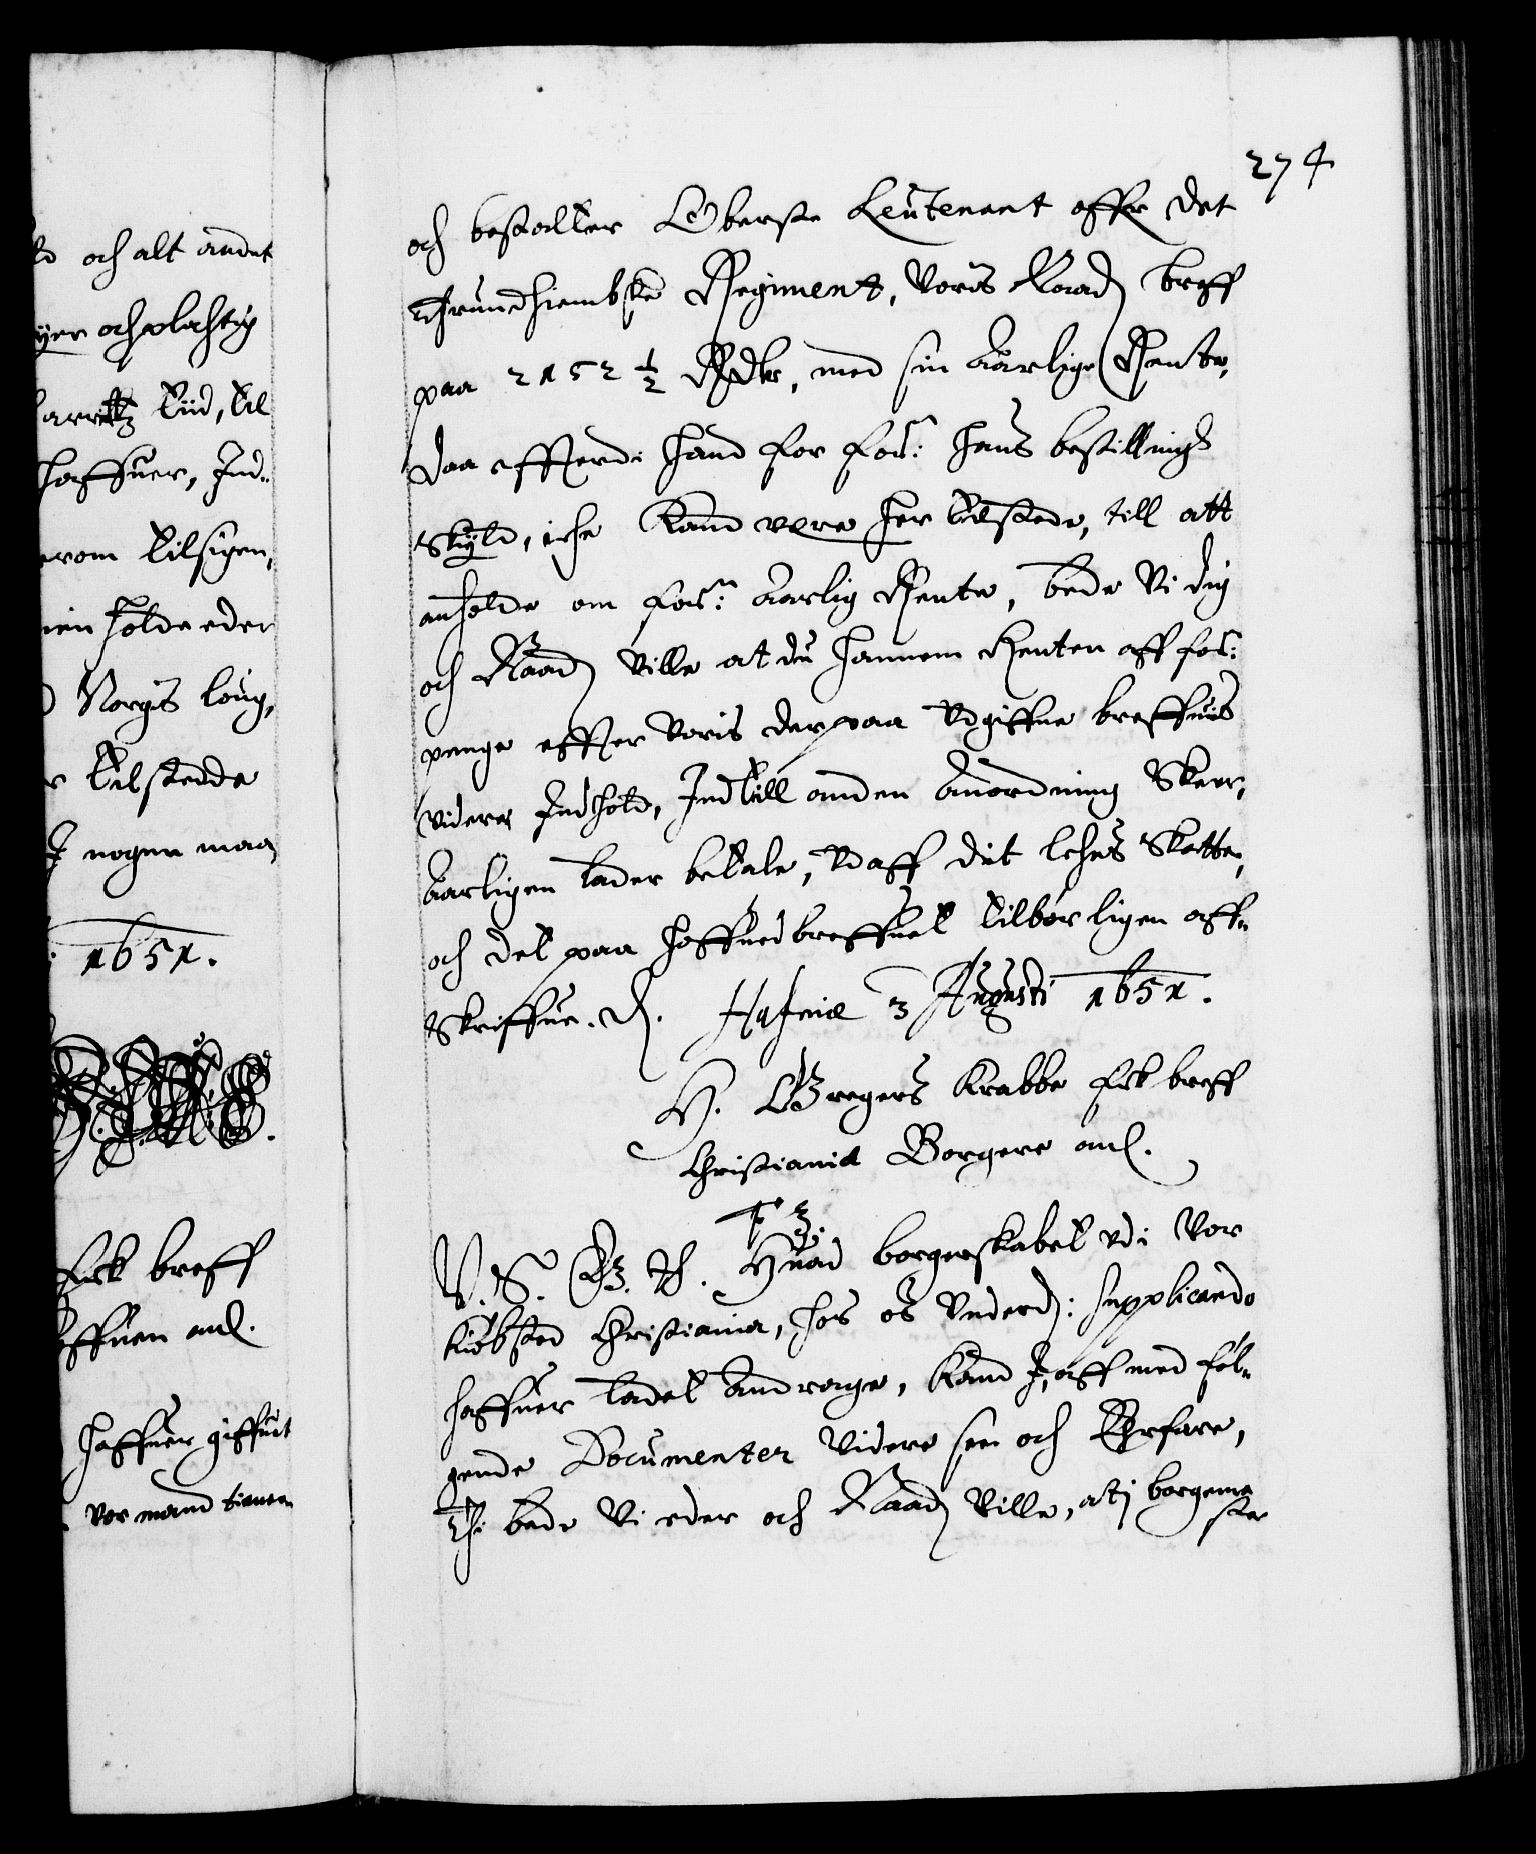 274
och bestalter Oberste Leutenant offer det
Thrundhiembske Regiment, Voris Naad: breff
paa 2152 1/2 Rdr, med sin Aarlige Rente,
daa efftterdi hand for fors: hans bestillings
skyld, iche kand were her tilstede, till att
anholde om fors: Aarlig Rente, bede Vi dig
och Naad: Ville at du hannem Renten aff fors:
penge effter Voris derpaa Udgiffne breffuis
videre Indhold, Indtill anden Anordning Skeer,
Aarligen lader betale, Udaff dit Lehns Skatter,
och det paa hoffuedbreffuet tilbørligen aff-
skriffue. D. Hafniæ 3 Augusti 1651.
H. Gregers Krabbe Fik breff
Christiania Borgere anl.
F 3.
V. S. G. T. Huad borgerskabet udi Vor
Kiøbsted Christiania, hos os Underd: supplicando
haffuer ladet Andrage, kand I, aff med føl-
gende Documenter Videre see och Erfare,
Thi bede Vi eder och Naad: Ville, at i borgeme
ster
och alt andet
och plachtig
tiid, til
haffuer, Ind-
tilsigen,
holde eder
Norgis loug,
tilstedde
I nogen maa,
1651.
Fik breff
anl.
haffuer giffuet
vor mand tienere